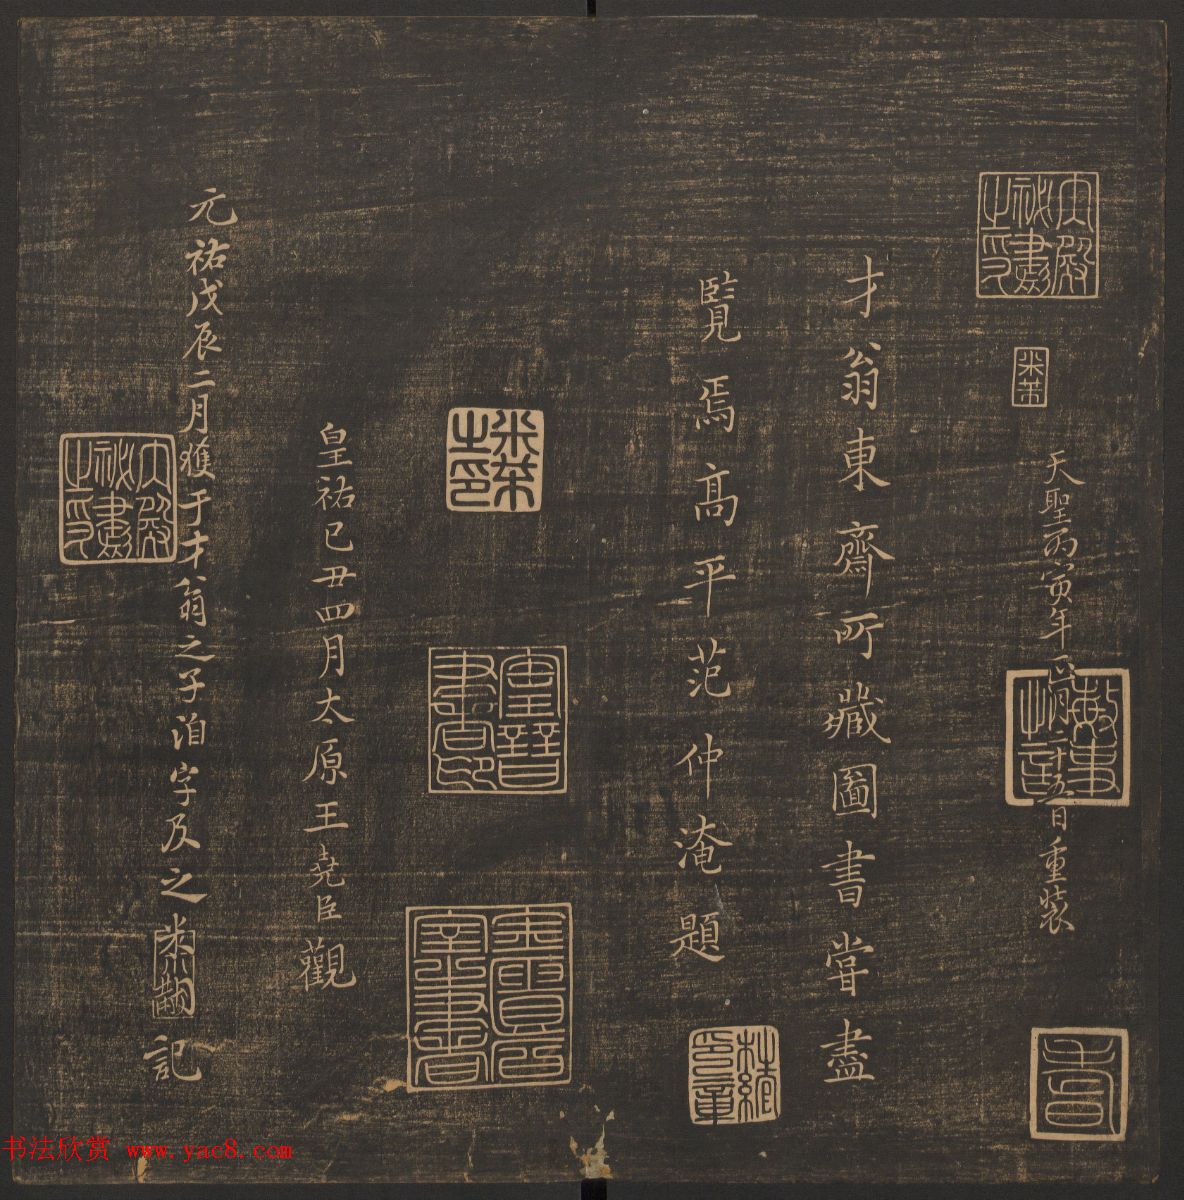 天聖丙寅年正月二十五日重裝
才翁東齋所藏圖書嘗盡
覽焉高平范仲淹題
皇祐己丑四月太原王堯臣觀
元祐戊辰二月獲于才翁之子洎字及之米黻記
內殿祕書之印
米芾
米芾之印
內殿祕書之印
书法欣赏 www.yac8.com